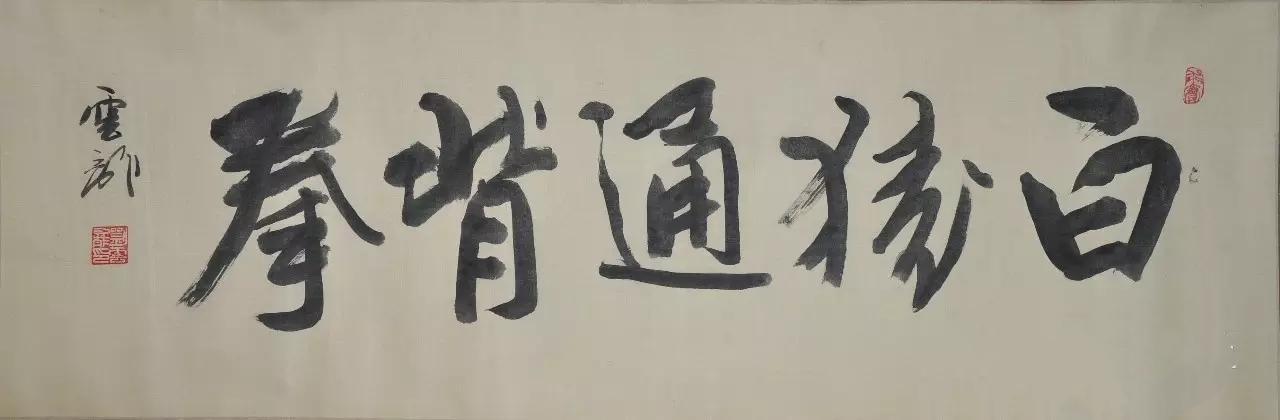 白猿通背拳
雲